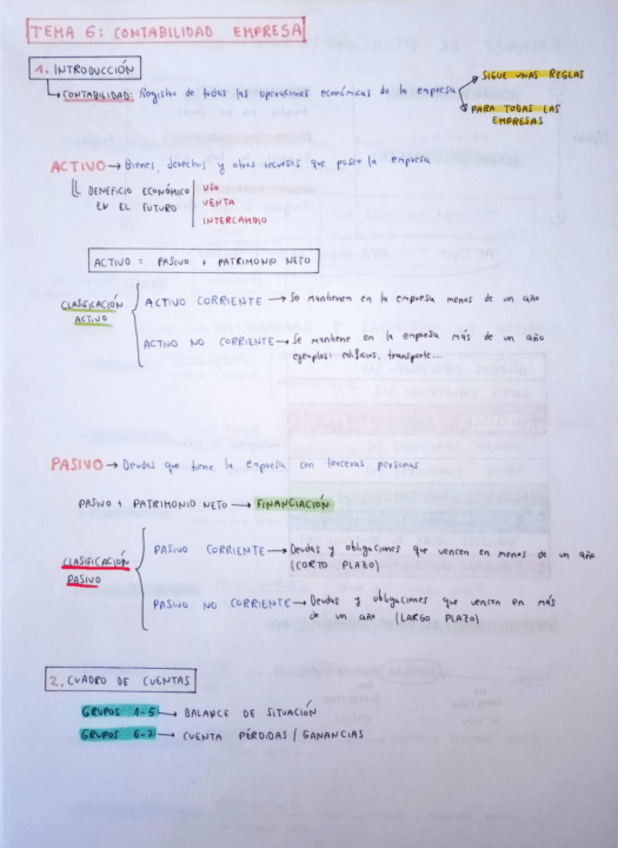 TEMA 6: CONTABILIDAD EMPRESA
1. INTRODUCCIÓN
CONTABILIDAD: Registro de todas las operaciones económicas de la empresa
SIGUE UNAS REGLAS
PARA TODAS LAS
EMPRESAS
ACTIVO → Bienes, derechos y otros recursos que posee la empresa
BENEFICIO ECONÓMICO
EN EL FUTURO
USO
VENTA
INTERCAMBIO
ACTIVO = PASIVO + PATRIMONIO NETO
CLASIFICACIÓN
ACTIVO
ACTIVO CORRIENTE → Se mantienen en la empresa menos de un año
ACTIVO NO CORRIENTE → Se mantiene en la empresa más de un año
ejemplos: edificios, transporte...
PASIVO → Deudas que tiene la empresa con terceras personas
PASIVO + PATRIMONIO NETO → FINANCIACIÓN
CLASIFICACIÓN
PASIVO
PASIVO CORRIENTE → Deudas y obligaciones que vencen en menos de un año
(CORTO PLAZO)
PASIVO NO CORRIENTE → Deudas y obligaciones que vencen en más
de un año (LARGO PLAZO)
2. CUADRO DE CUENTAS
GRUPOS 1-5 → BALANCE DE SITUACIÓN
GRUPOS 6-7 → CUENTA PÉRDIDAS/GANANCIAS